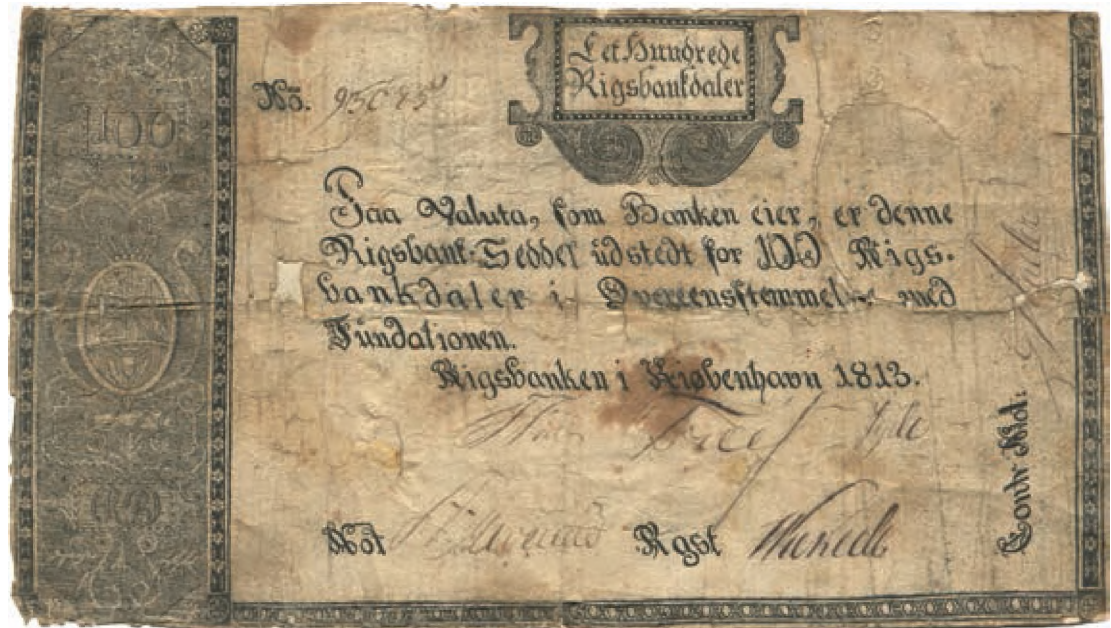 Eet Hundrede
Rigsbankdaler
No. 95085
100
Paa Valuta, som Banken eier, er denne
Rigsbank-Seddel üdstedt for 100 Rigs-
bankdaler i Overeensstemmelse med
Fündationen.
Rigsbanken i Kiøbenhavn 1813.
Not
Rgst
Contr Not: